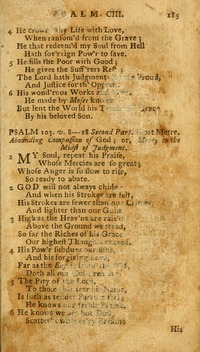 ALM. CIII. 185
4 He crowns thy Life with Love,
When ransom'd from the Grave;
He that redeem'd my Soul from Hell
Hath sov'reign Pow'r to save.
5 He fills the Poor with Good;
He gives the Suff'rers Rest;
The Lord hath Judgments for the Proud,
And Justice for th' Opprest.
6 His wond'rous Works and Ways
He made by Moses known;
But sent the World his Truth Grace
By his beloved Son.
PSALM 103. v. 8--18 Second Part. Short Metre.
Abounding Compassion of God; or, Mercy in the
Midst of Judgment.
1 MY Soul, repeat his Praise,
Whose Mercies are so great;
Whose Anger is so slow to rise,
So ready to abate.
2 GOD will not always chide
And when his Strokes are felt,
His Strokes are fewer than our Crimes,
And lighter than our Guilt
3 High as the Heav'ns are rais'd
Above the Ground we tread,
So far the Riches of his Grace
Our highest Thoughts exceed.
4 His Pow'r subdues our Sins,
And his forgiving Love,
Far as the
Doth all our
5 The Pity of the Lord,
To those that fear his Name,
Is such as tender Parents feel;
He knows our feeble Frame.
6 He knows we are but Dust,
Scatter'd
His